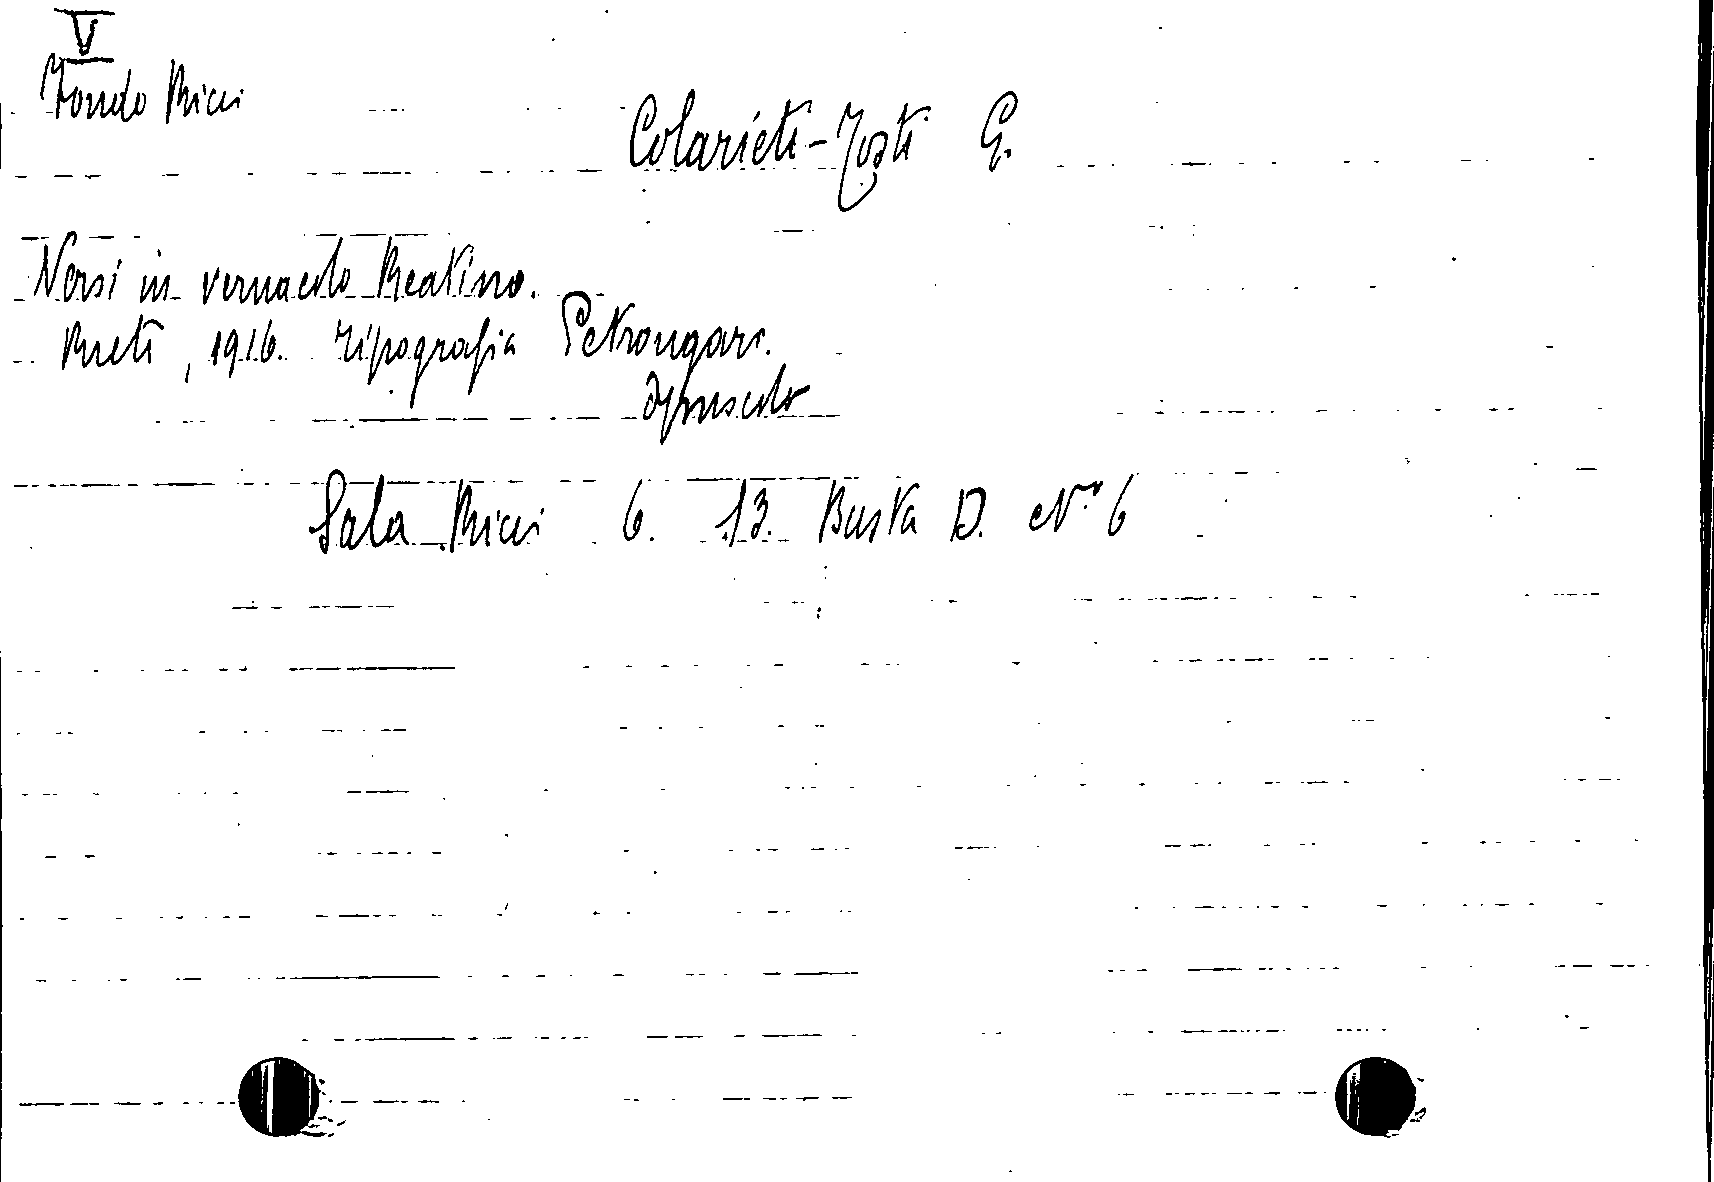 V
Fondo Ricci
Colarieti-Tosti G.
Versi in vernacolo Reatino.
Rieti, 1916. Tipografia Petrongari.
Opuscolo
Sala Ricci 6. 13. Busta D. N° 6